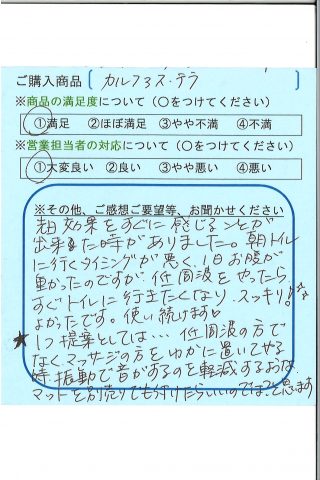 ご購入商品 カルフろス・テラ
※商品の満足度について（○をつけてください）
①満足 ②ほぼ満足 ③やや不満 ④不満
※営業担当者の対応について（○をつけてください）
①大変良い ②良い ③やや悪い ④悪い
※その他、ご感想ご要望等、お聞かせください
効果をすぐに感じることが
出来た時がありました。朝トイレ
に行くタイミングが悪く、1日お腹が
重かったのですが、低周波をやったら
すぐトイレに行きたくなり、スッキリ!
よかったです。使い続けます
★1つ提案としては… 低周波の方で
なくマッサージの方をゆかに置いてやる
時振動で音がするのを軽減するような
マットを別売りでも付けたらいいのでは?と思います